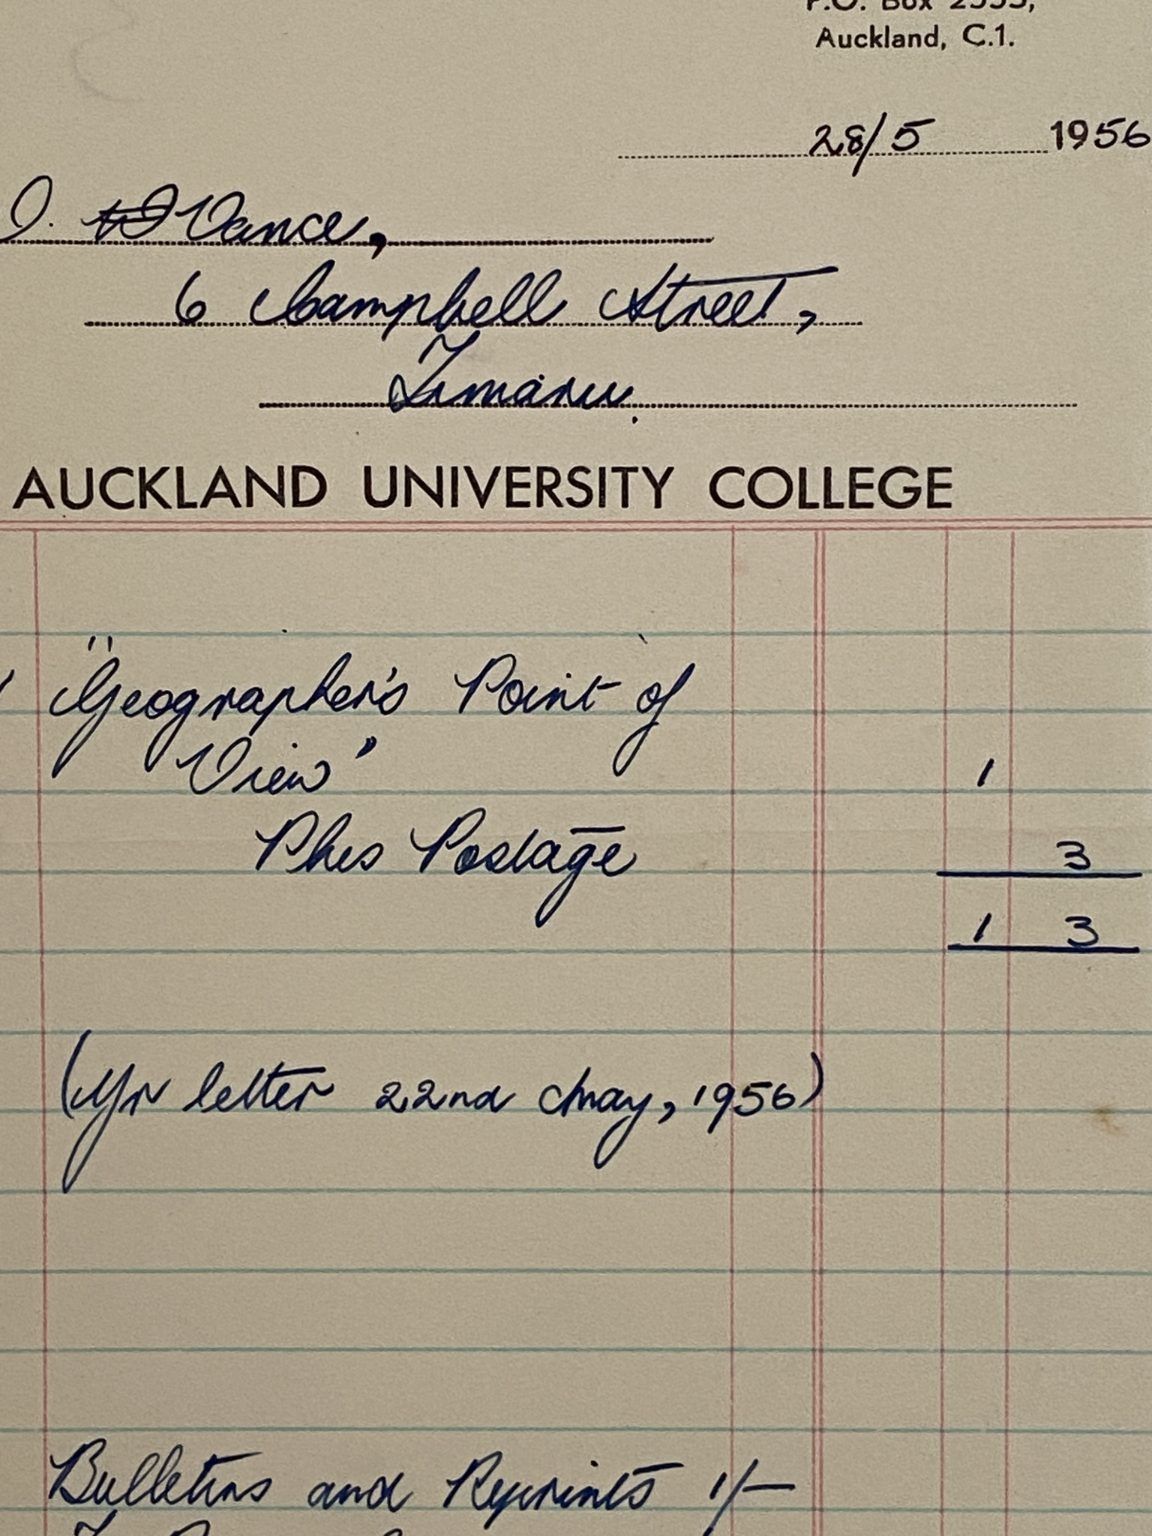 P.O. Box 2553,
Auckland, C.1.
28/5 1956
Vance,
6 Campbell Street,
Timaru.
AUCKLAND UNIVERSITY COLLEGE
"Geographer's Point of
View" 1
Plus Postage 3
1 3
(Yr letter 22nd May, 1956)
Bulletins and Reprints 1/-